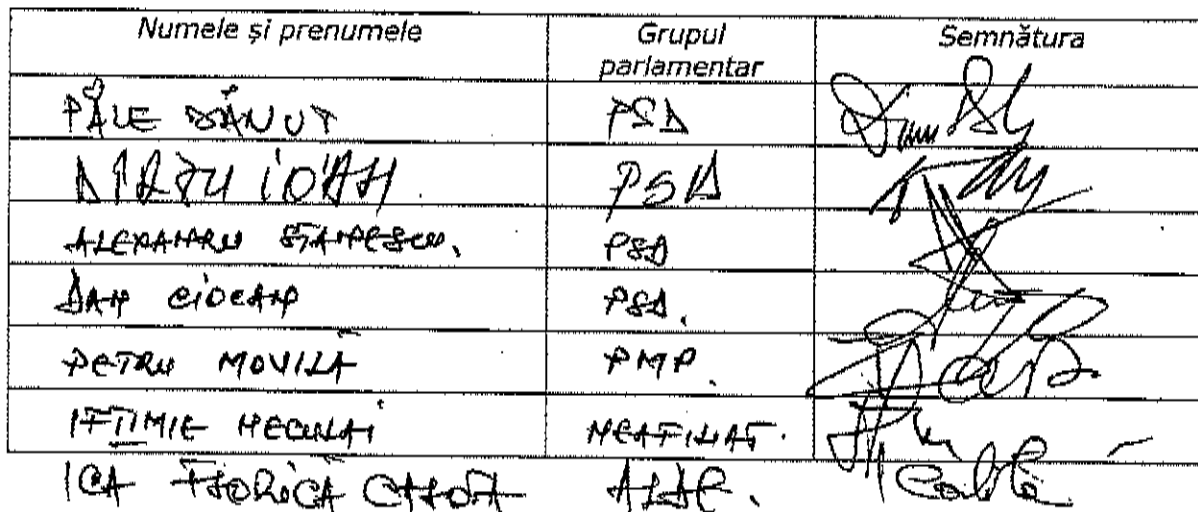 Numele și prenumele Grupul parlamentar Semnătura
PÂLE DĂNUȚ PSD
DÎRZU IOAN PSD
ALEXANDRU STĂNESCU. PSD
DAN CIOCAN PSD.
PETRU MOVILĂ PMP.
IFTIMIE NECULAI NEAFILIAT.
ICA FLORICĂ CALOTĂ ALDE.